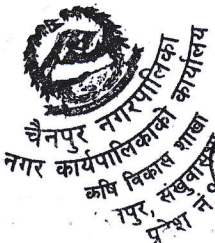 चैनपुर नगरपालिका
नगर कार्यपालिकाको कार्यालय
कृषि विकास शाखा
पुर, संखुवास
प्रदेश नं